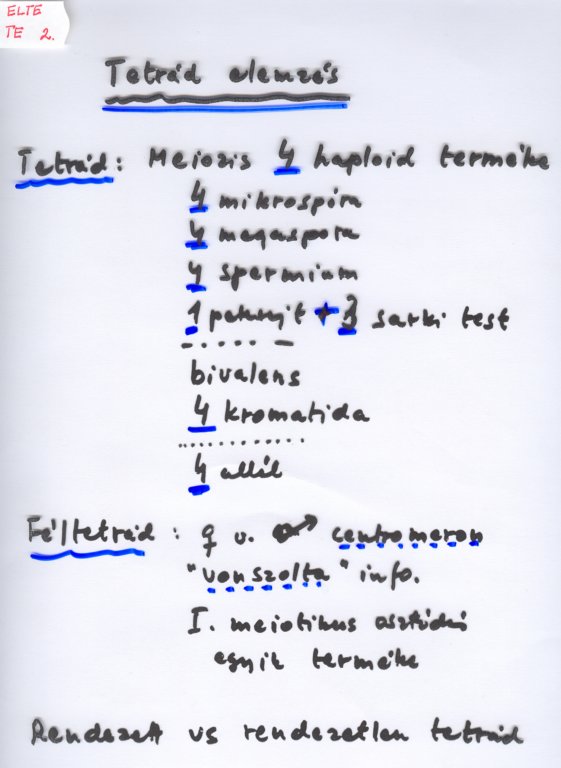 ELTE
TE 2.
Tetrád elemzés
Tetrád: Meiozis 4 haploid terméke
4 mikrospóra
4 megaspora
4 spermium
1 petesejt + 3 sarki test
bivalens
4 kromatida
4 allél
Féltetrád: ♀ v. ♂ centromeron
"vonszolta" info.
I. meiotikus osztódás
egyik terméke
Rendezett vs rendezetlen tetrád